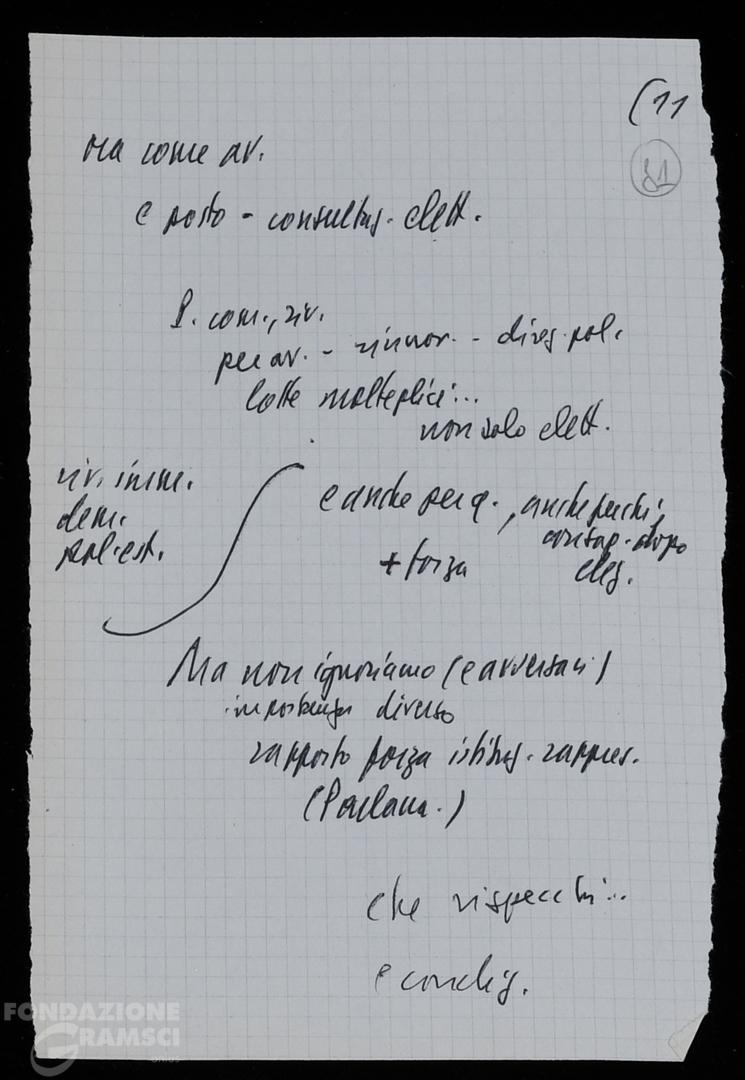 (11
81
Ma come av.
e posto - consultaz. elett.
P. com., riv.
per av. - rinnov. - direz. pol.
lotte molteplici...
non solo elett.
riv. imm.
dem.
pol. est.
e anche per q., anche perchè
consap. dopo
+ forza elez.
Ma non ignoriamo (e avversari)
importanza diverso
rapporto forza istituz. rappres.
(Parlam.)
che rispecchi...
e condiz.
FONDAZIONE
GRAMSCI
onlus